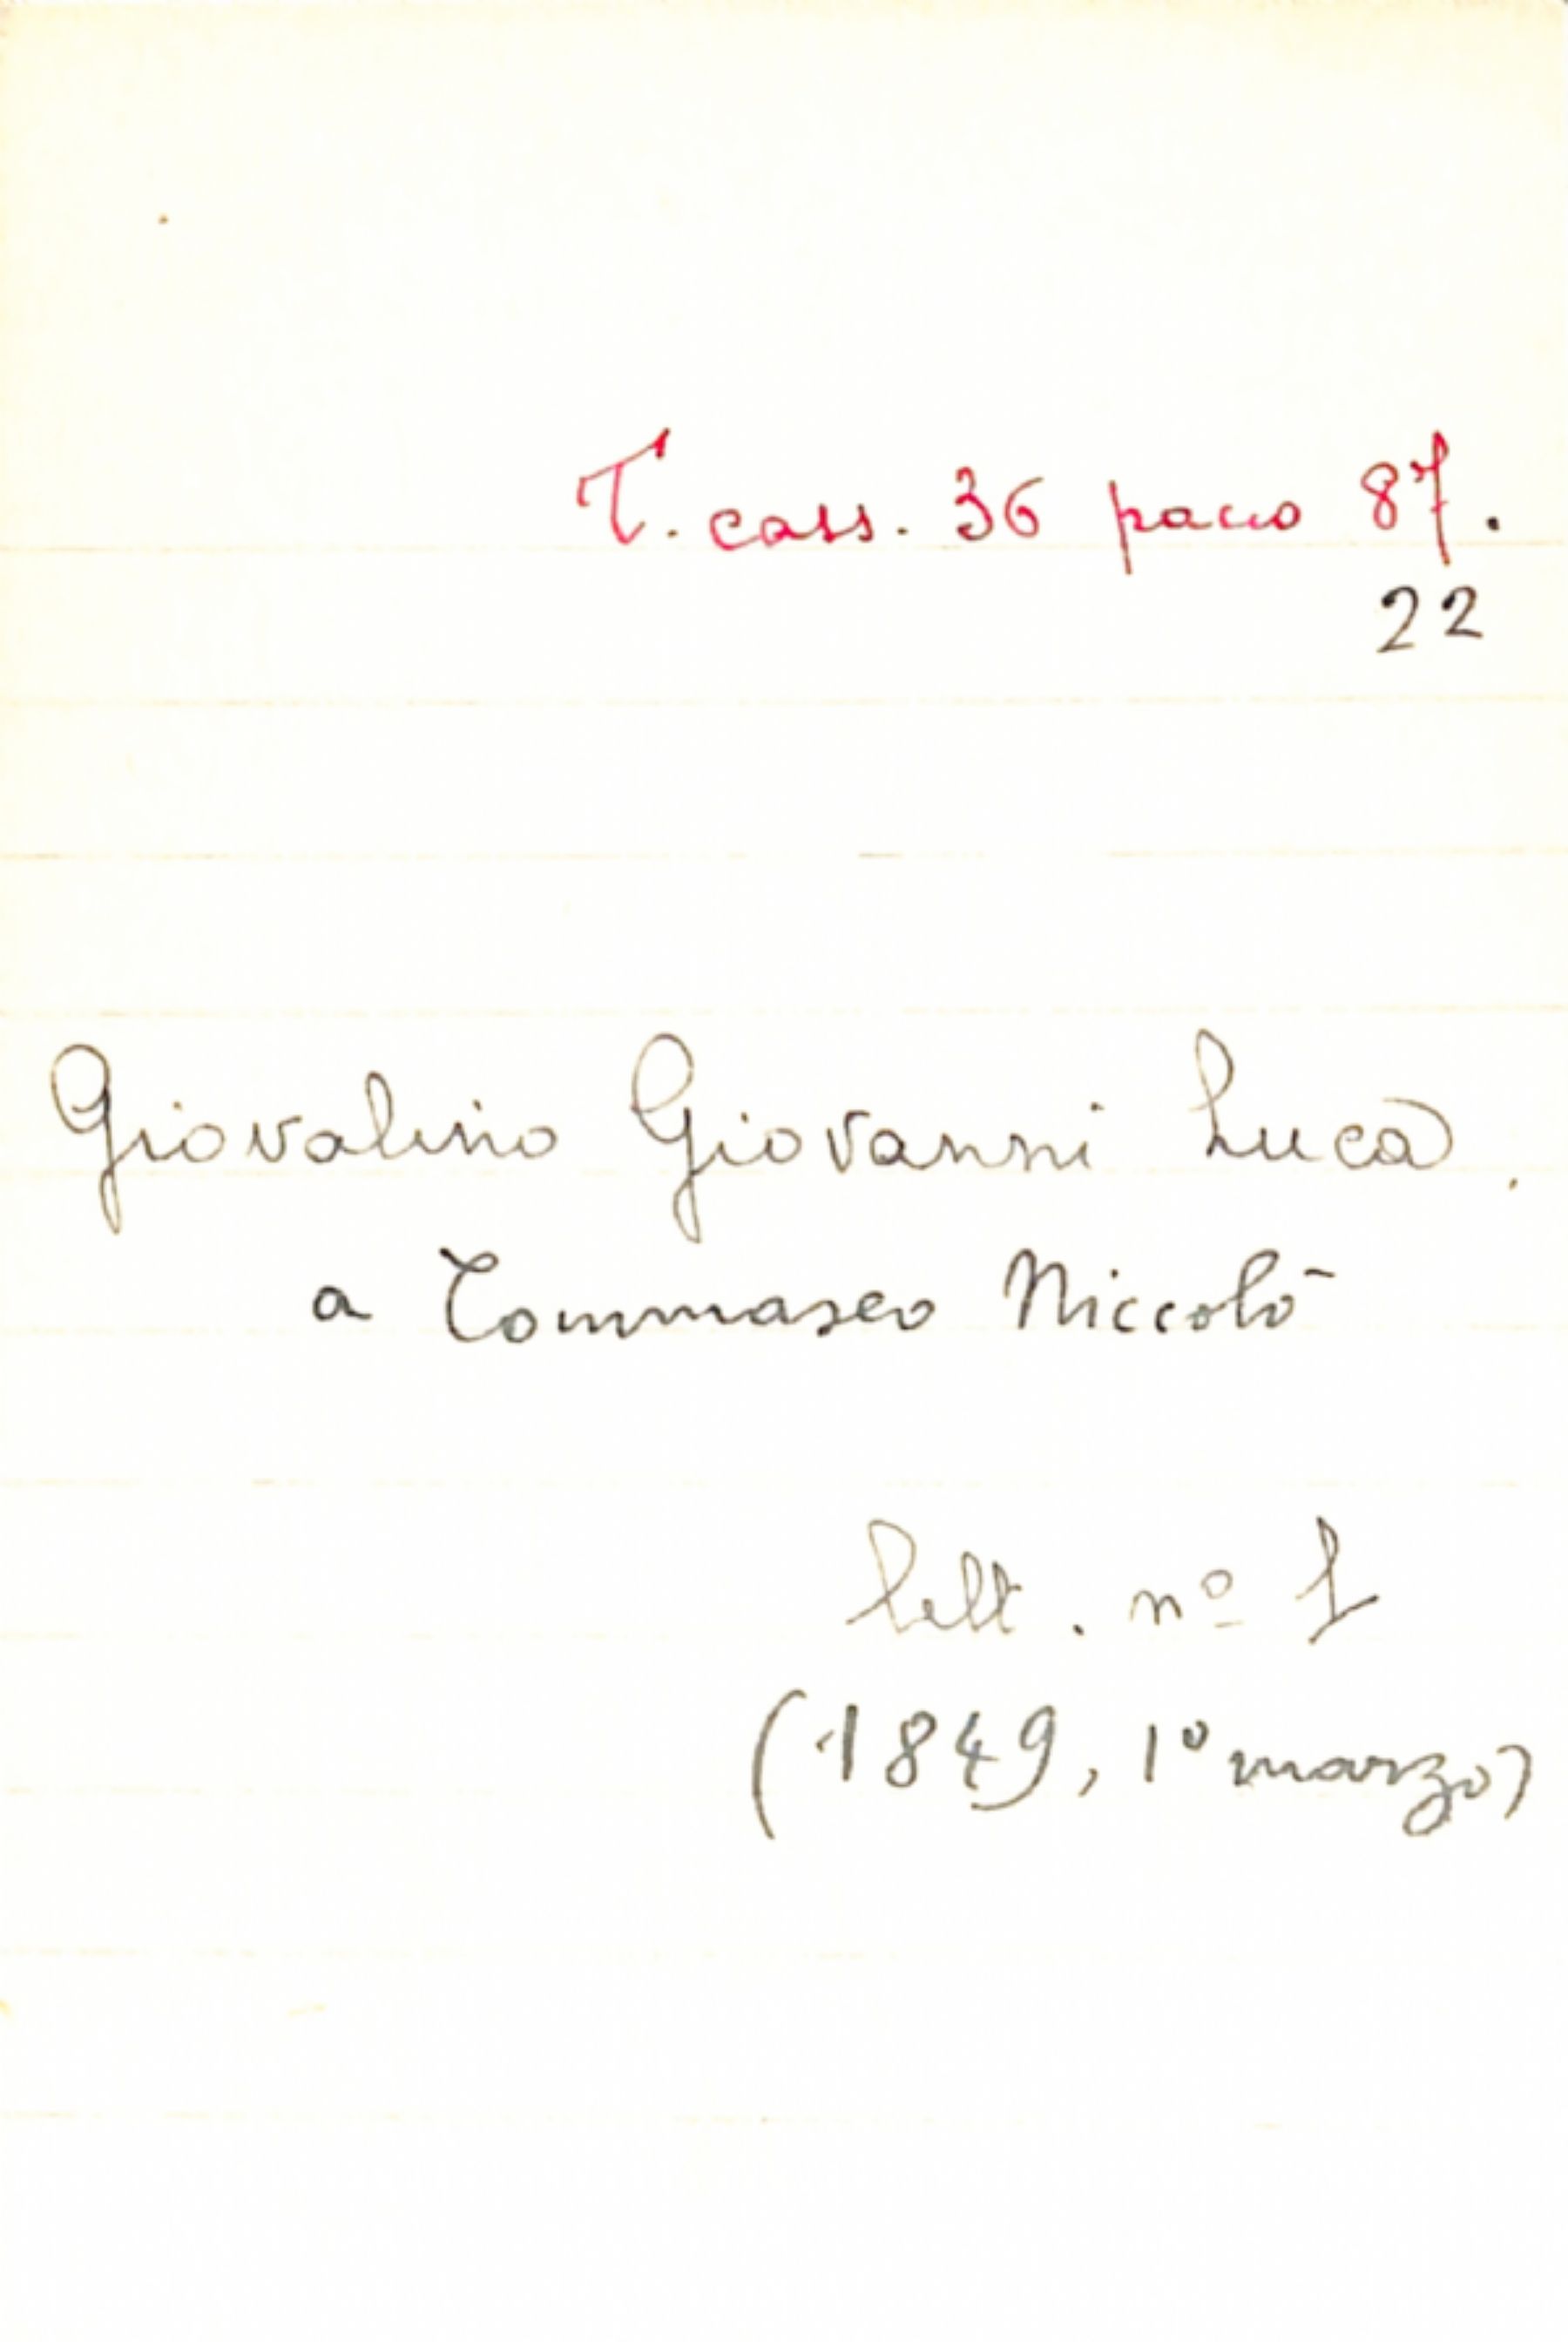 T. cass. 36 pacco 87.
22
Giovalino Giovanni Luca.
a Tommaseo Niccolò
lett. nº 1
(1849, 1º marzo)